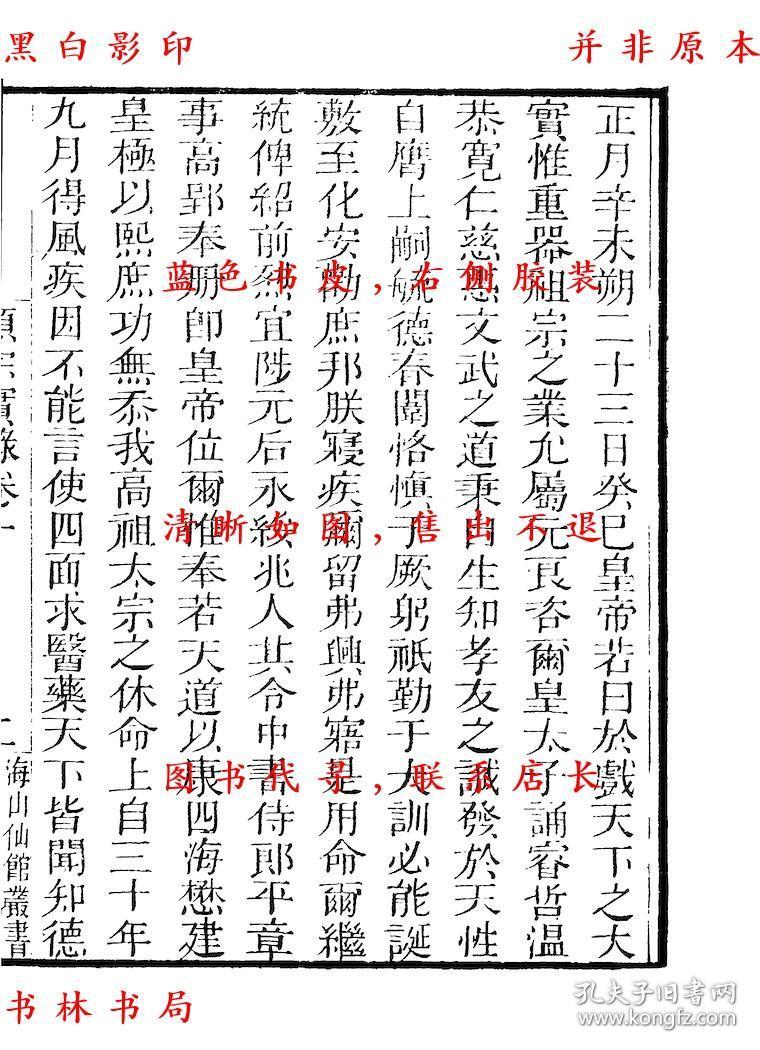 黑白影印
并非原本
正月辛未朔二十三日癸巳皇帝若曰於戲天下之大
實惟重器祖宗之業允屬元良咨爾皇太子誦睿哲溫
恭寬仁慈惠文武之道秉自生知孝友之誠發於天性
自膺上嗣毓德春闈恪慎于厥躬祇勤于大訓必能誕
敷至化安勸庶邦朕寢疾彌留弗興弗寤是用命爾繼
統俾紹前烈宜陟元后永綏兆人其令中書侍郎平章
事高郢奉冊即皇帝位爾惟奉若天道以康四海懋建
皇極以熙庶功無忝我高祖太宗之休命上自三十年
九月得風疾因不能言使四面求醫藥天下皆聞知德
順宗實錄卷一
二
海山仙館叢書
蓝色书皮,右侧胶装
清晰如图,售出不退
图书代寻,联系店长
书林书局
孔夫子旧书网
www.kongfz.com